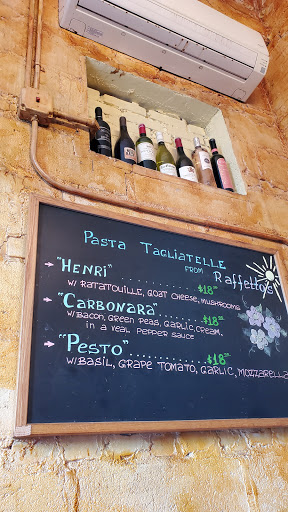 Pasta Tagliatelle
from Raffetto's
"Henri" ........ $18.00
w/ ratatouille, goat cheese, mushrooms
"Carbonara" ........ $18.00
w/bacon, green peas, garlic, cream,
in a veal pepper sauce
"Pesto" ........ $18.00
w/basil, grape tomato, garlic, mozzarella